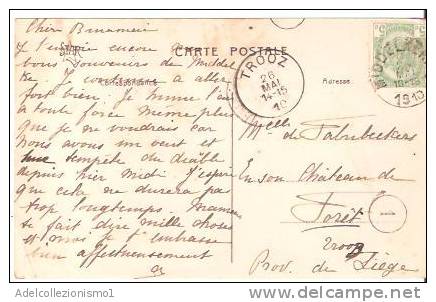 Cher Bonamaire
Je t'envoie encore de
bons souvenirs de Middel
Ke. Je continue à aller
fort bien. Je hume l'air
à toute force meme plus
que je ne voudrais car
nous avons un vent et
une tempête du diable
depuis hier midi. J'espère
que cela ne durera pas
trop longtemps. Maman
te fait dire mille choses
et moi je t'embrasse
bien affectueusement
CARTE POSTALE
Correspondance
Adresse
TROOZ
26
MAI
14-15
10
MIDDELKERKE
1910
Melle de Fabribeckers
En son Château de
Forêt
Trooz
Prov. de Liége
1
Adelcollezionismo1
delcampe.net